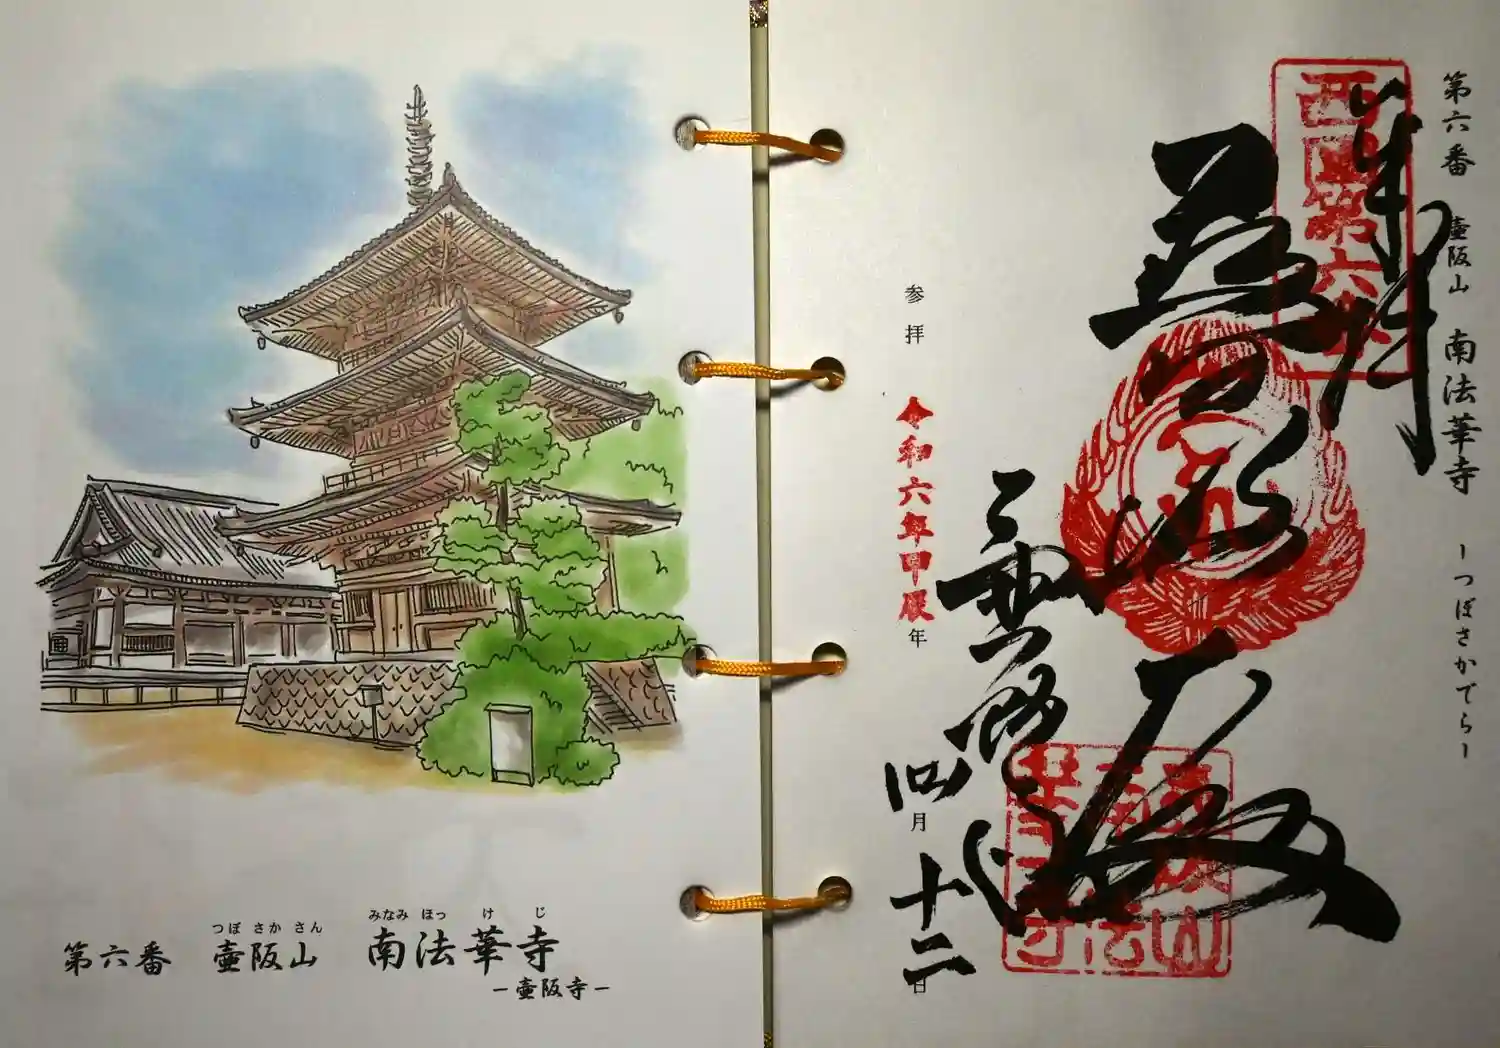 つぼ さか さん　みなみ ほっ け じ
第六番　壷阪山　南法華寺
－壷阪寺－
第六番　壷阪山　南法華寺　－つぼさかでら－
奉拝
西国第六番
普照殿
壷阪山
南法
華寺
参拝　令和六年甲辰年　四月　十二日